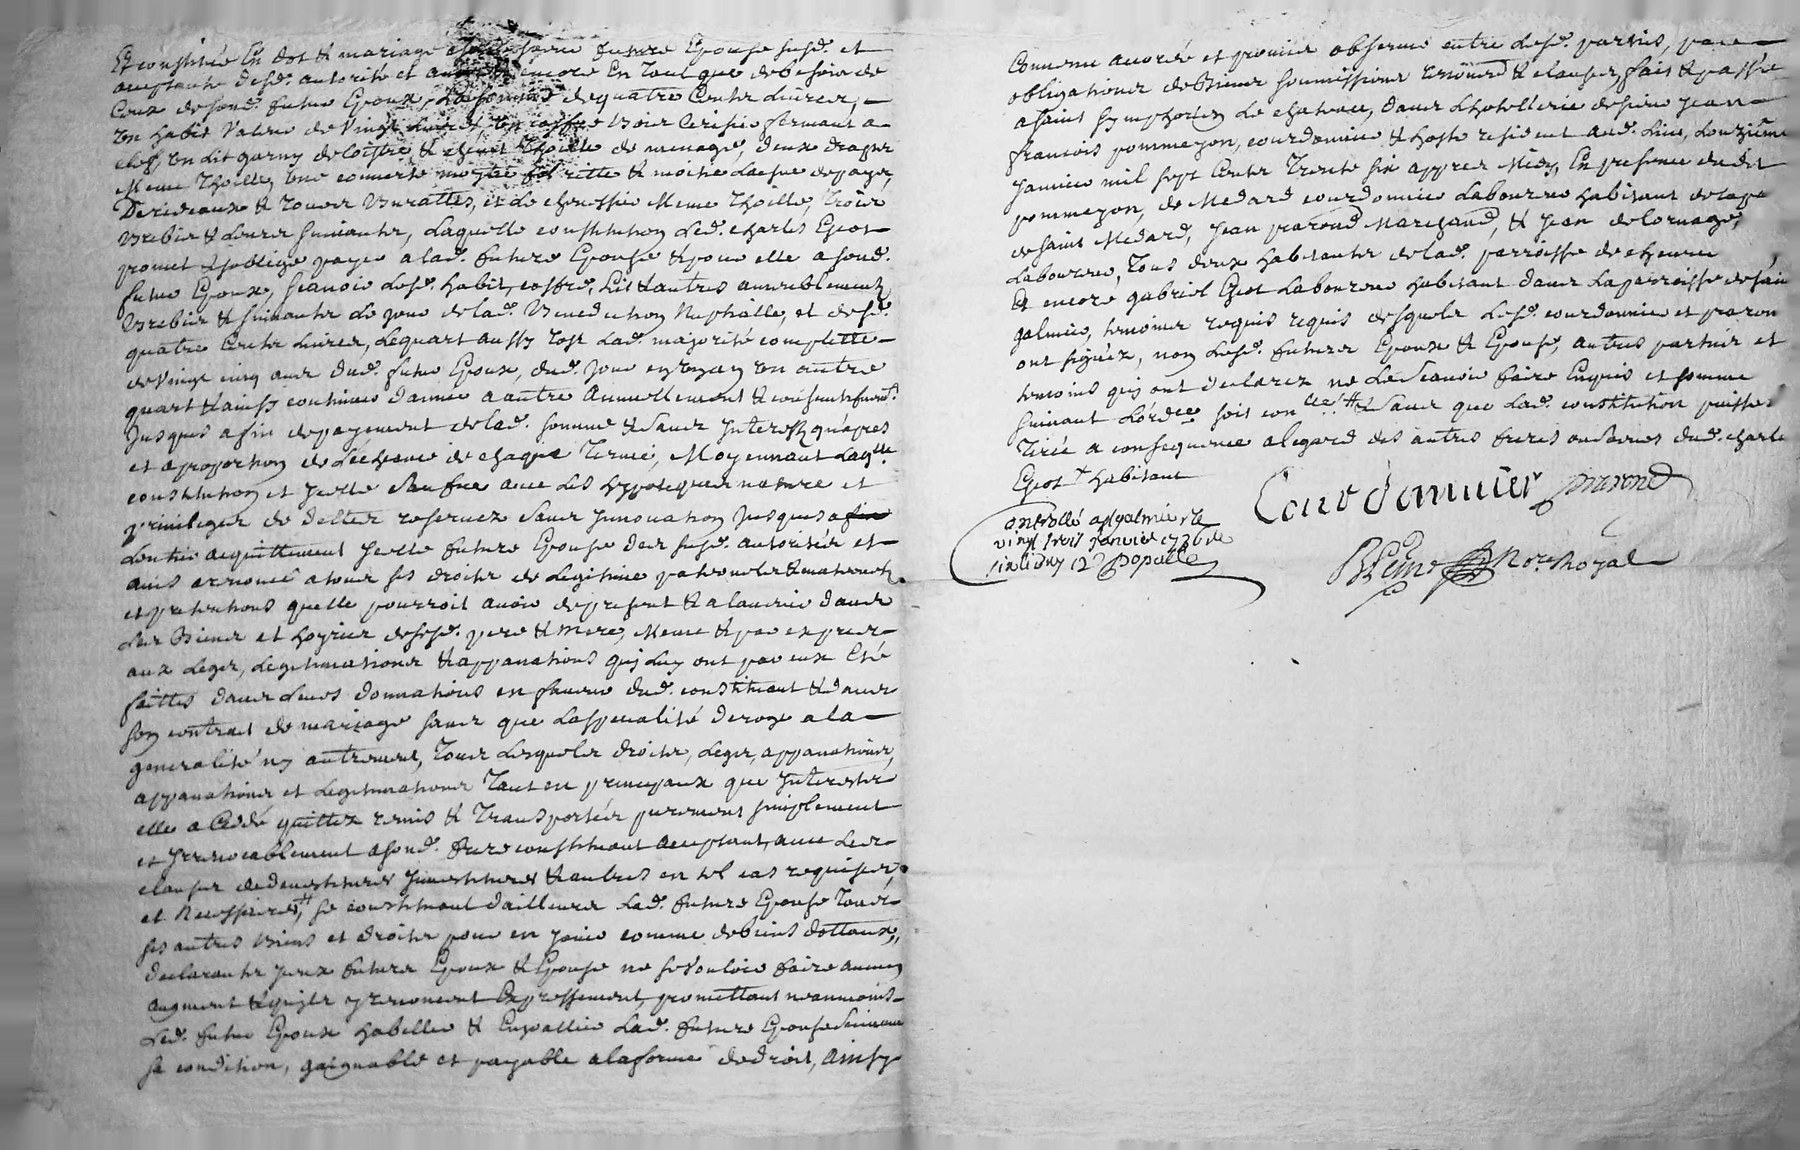 Et constitué En dot & mariage future Epouse susd. et
acceptante desd. autorité et encore En tout que de besoin de
Ceux de sond. futur Epoux, La somme de quatre Centz Livres,
un habit Valeur de Vingt Livres, un coffre bois Cerisier fermant a
clef, un Lit garny de coittre, & chevet Thoille de menage, deux draps
Meme Thoille, une couverte moytié & moitié
De rideaux & tour Burattes, et Le chenssié Meme Thoille, Trois
Brebis & Leurs suivantes, Laquelle constitution Led. Charles Geot
promet & soblige payer a lad. future Epouse & pour elle a sond.
futur Epoux, scavoir Lesd. habit, coffre, Lit & autres ameublements
Brebis & suivantes Le jour de lad. Benediction Nuptialle, et desd.
quatre Centz Livres, Lequart aussy tost Lad. majorité complette
de Vingt cinq ans dud. futur Epoux, dud. jour en un an un autre
quart & ainsy continuer dannée a autre Annuellement & consecutivemt.
Jusques a fin de payement de lad. somme & Sans Interestz quapres
et a proportion de Léchéance de chaque Terme, Moyennant Laqlle.
constitution et Jcelle Sauf avec Les hypoteques nature et
privileges de debtes reservez Sans Innovation Jusques a
Lentier acquittement Jcelle future Epouse des susd. autoritéz et
avis a renoncé a tous ses droits de Legitime paternels & maternels
et pretentions quelle pourroit avoir de present & a lavenir dans
Les Biens et hoyries desd. pere & mere, Meme & par exprez
aux Legs, Legitimations & appanations quj Luy ont par eux Eté
faittes dans Leurs donnations en faveur dud. constituant & dans
son contract de mariage sans que Laspecialité deroge a la
generalité ny autrement, Tous Lesquels droits, Legs, appanations,
appanations et Legitimations Tant en principaux que Interestz
elle a Ceddé quittez remis & Transportéz purement simplement
et Irrevocablement a sond. frere constituant acceptant, avec Les
clauses de devestitures Jnvestitures & autres en tel cas requises,
et Necessaires, se constituant dailleurs Lad. future Epouse Tous
ses autres Biens et droits pour en jouir comme de biens dottaux,
declarants Jceux futurs Epoux & Epouse ne se Vouloir faire aucun
augment & quils y renoncent Expressement, promettant neanmoins
Led. futur Epoux habiller & Enjoallier Lad. future Epouse Suivant
sa condition, gaignable et payable a la forme de droit, Ainsy
Convenu accordé et promis observer entre Lesd. partiés, par
obligations de Biens soumissions renoncé & clauses, fait & passé
a saint Symphorien Le chateau, dans Lhotellerie de sieur Jean
francois pommezon, courdonnier & hoste resident aud. Lieu, Lonzième
Janvier mil sept Centz Trente six appres Midy, En presence dudit
pommezon, de Medard courdonnier Laboureur habitant
de saint Medard, Jean parond Marchand, & Jean delornage,
Laboureur, Tous deux habitants de lad. parroisse de chevrieu
& encore gabriel Geot Laboureur habitant dans La parroisse de sain
galmier, temoins requis requis desquels Lesd. courdonnier et paron
ont signéz, non Lesd. futurs Epoux & Epouse, autres partiés et
temoins quj ont declarez ne Le Scavoir faire Enquis et somme
suivant Lordce. soit con & Sans que Lad. constitution puisse
Tirée a consequence a legard des autres freres ou soeurs dud. charle
Geot habitant
Courdonnier parond
ontrollé a St galmier le
vingt trois janvier 1736
Nore. Royal